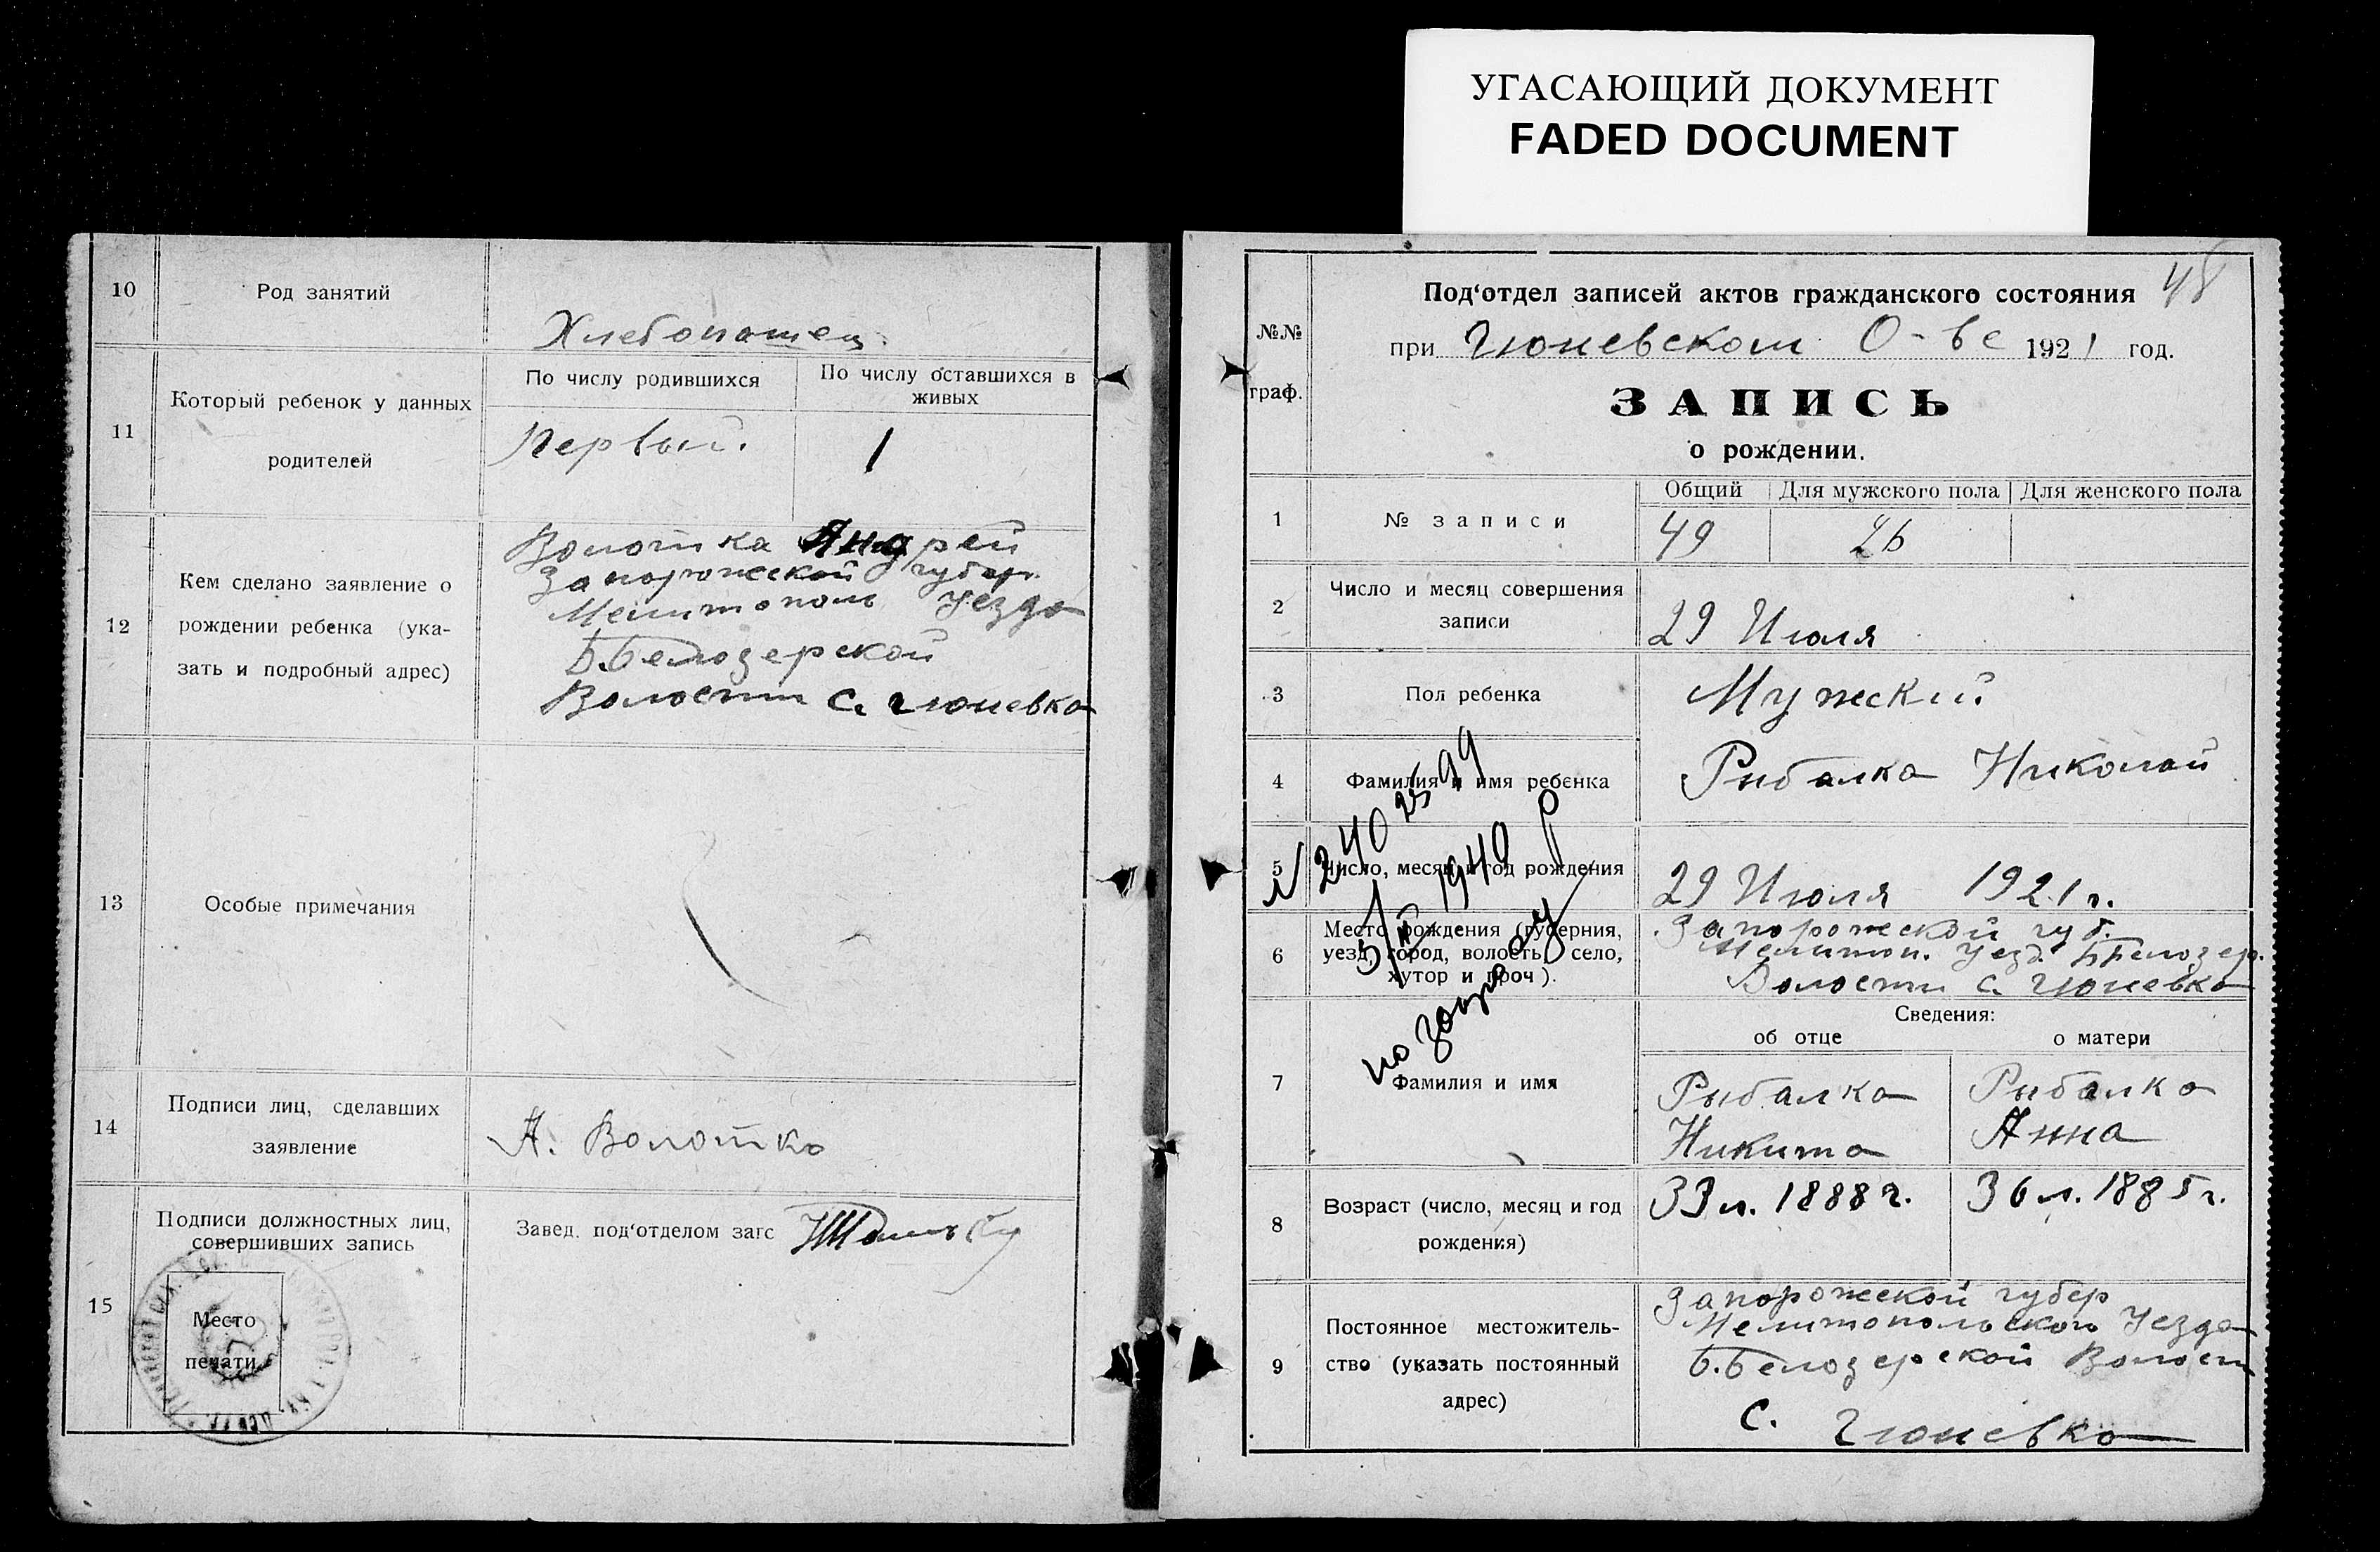 УГАСАЮЩИЙ ДОКУМЕНТ
FADED DOCUMENT
10
Род занятий
Хлебопашец.
11
Который ребенок у данных
родителей
По числу родившихся
По числу оставшихся в
живых
Первый.
1
12
Кем сделано заявление о
рождении ребенка (ука-
зать и подробный адрес)
Волотка Андрей
Запорожской губер.
Мелитополь Уезда
Б.Белозерской
Волости с. Гюневка
13
Особые примечания
14
Подписи лиц, сделавших
заявление
А. Волотко
15
Подписи должностных лиц,
совершивших запись
Место
печати
Завед. под‘отделом загс
48
№№
граф.
Под‘отдел записей актов гражданского состояния
при Гюневском О-ве 1921 год.
ЗАПИСЬ
о рождении.
1
№ записи
Общий
Для мужского пола
Для женского пола
49
26
2
Число и месяц совершения
записи
29 Июля
3
Пол ребенка
Мужский
4
Фамилия и имя ребенка
Рибалка Николай
5
Число, месяц и год рождения
29 Июля 1921 г.
6
Место рождения (губерния,
уезд, город, волость, село,
хутор и проч).
Запорожской губ.
Мелитоп. Уезд. Б Белозер.
Волости с. Гюневка
Сведения:
об отце
о матери
7
Фамилия и имя
Рыбалка
Никита
Рыбалка
Анна
8
Возраст (число, месяц и год
рождения)
33 л. 1888 г.
36 л. 1885 г.
9
Постоянное местожитель-
ство (указать постоянный
адрес)
Запорожской губер
Мелитопольской Уезда
Б.Белозерской Волости
с. Гюневка
№ 240
1940
по запросу